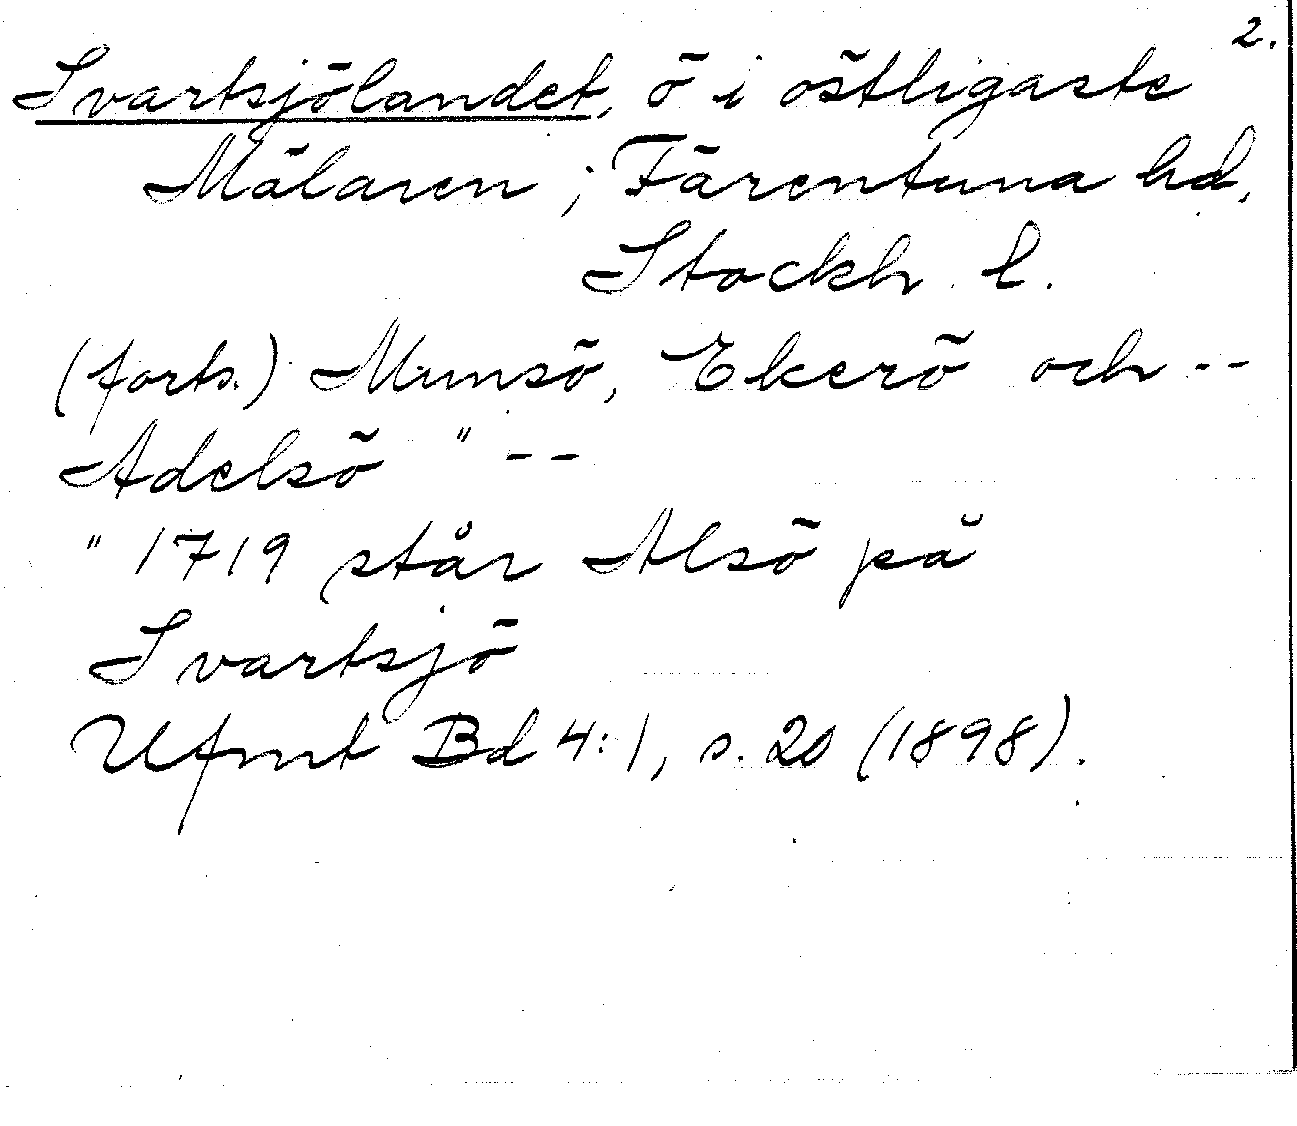 2.
Svartsjölandet, ö i östligaste
Mälaren; Färentuna hd,
Stockh. l.
(forts.) Munsö, Ekerö och --
Adelsö " --
" 1719 står Alsö på
Svartsjö
Ufmt Bd 4:1, s. 20 (1898).